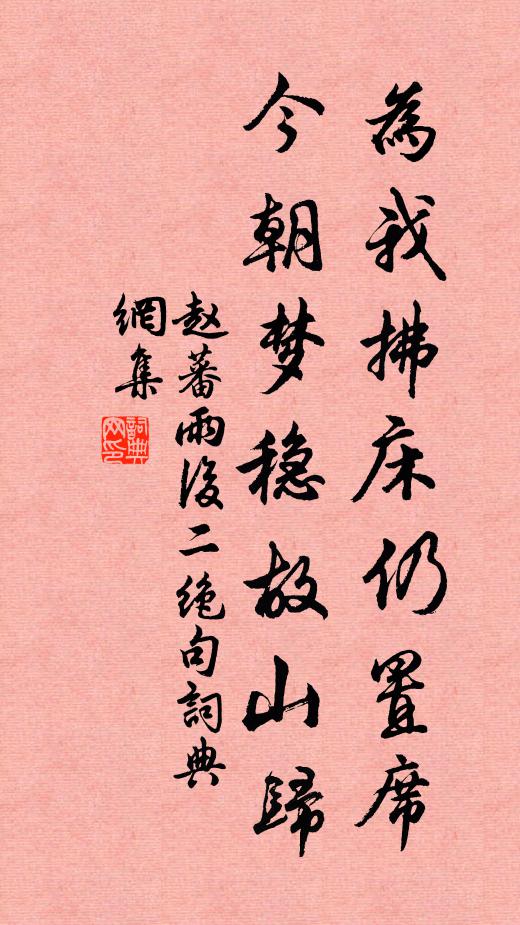 為我拂床仍置席
今朝梦稳故山歸
赵蕃雨後二绝句詞典
網集
詞典
网印